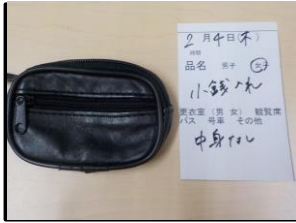 2月4日(木)
時間
品名 男子 女子
小銭入れ
更衣室 (男 女) 観覧席
バス 号車 その他
中身なし